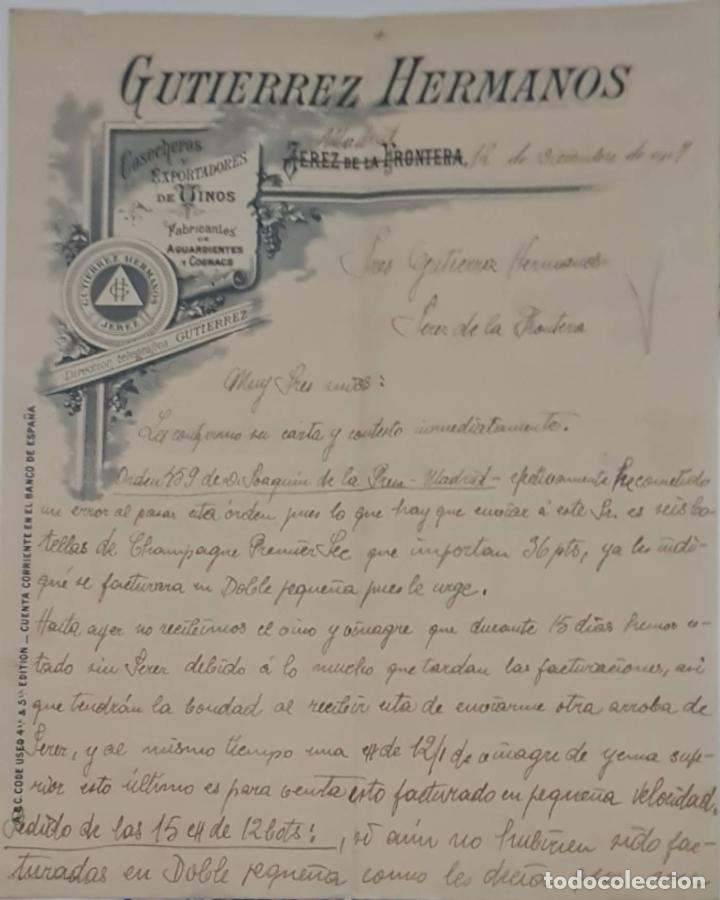 GUTIERREZ HERMANOS
Madrid
JEREZ DE LA FRONTERA, 12 de Diciembre de 1919
Cosecheros
Y
EXPORTADORES
DE VINOS
Fabricantes
DE
AGUARDIENTES
Y COGNACS
GUTIERREZ HERMANOS
GH
JEREZ
Dirección telegráfica GUTIERREZ
A.B.C. CODE USED 4th & 5th EDITION — CUENTA CORRIENTE EN EL BANCO DE ESPAÑA
Sres Gutierrez Hermanos
Jerez de la Frontera
Muy Sres mios:
Les confirmo su carta y contesto inmediatamente.
Orden 459 de D. Joaquin de la Presa - Madrid - efectivamente he cometido
un error al pasar esta órden pues lo que hay que enviar á este Sr. es seis bo-
tellas de Champagne Premier Sec que importan 36 pts, ya les indi-
qué se facturara en Doble pequeña pues le urge.
Hasta ayer no recibimos el vino y vinagre que durante 15 dias hemos es-
tado sin Jerez debido á lo mucho que tardan las facturaciones, asi
que tendrán la bondad al recibir esta de enviarme otra arroba de
Jerez, y al mismo tiempo una c/ de 12/1 de vinagre de yema supe-
rior esto último es para venta esto facturado en pequeña velocidad.
Pedido de las 15 c/ de 12 bots:, si aún no hubieren sido fac-
turadas en Doble pequeña como les decia
todocoleccion.net